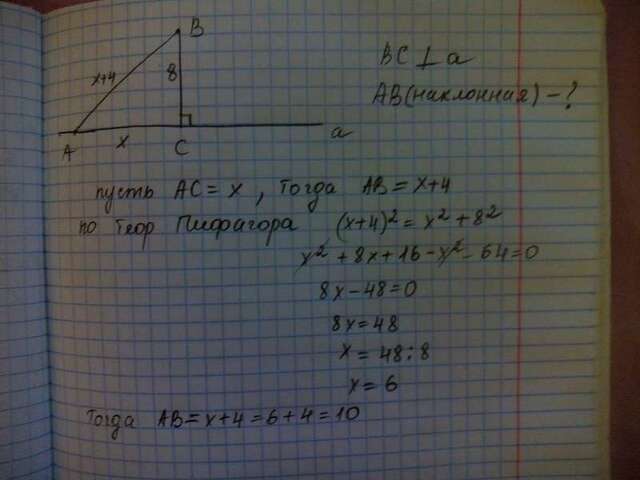 B
x+4
8
A
x
C
a
BC ⊥ a
AB(наклонная) – ?
пусть AC = x , тогда AB = x+4
по теор Пифагора (x+4)² = x² + 8²
x² + 8x + 16 – x² – 64 = 0
8x – 48 = 0
8x = 48
x = 48 : 8
x = 6
Тогда AB = x+4 = 6+4 = 10